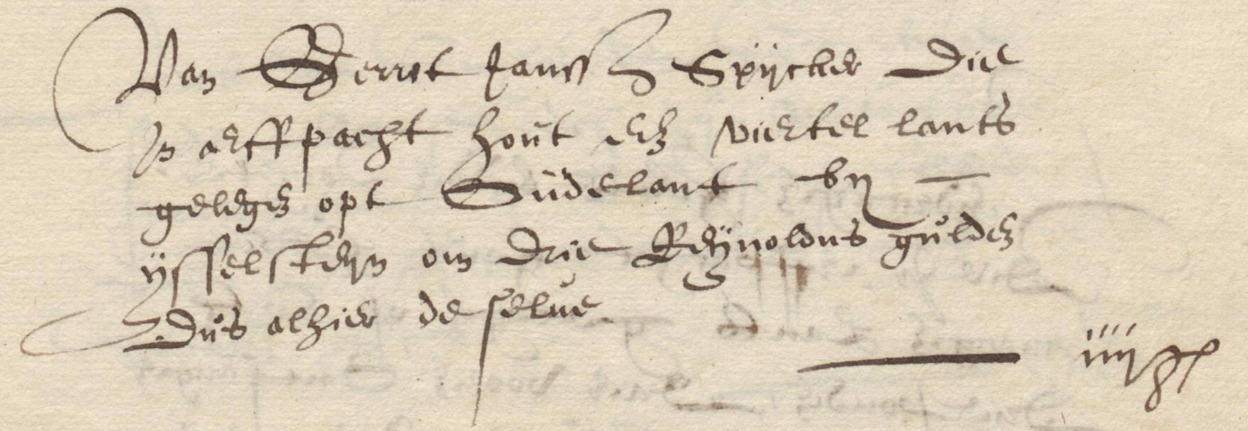 Van Gerret Janss Spijcker die
In erffpacht hout een viertel lants
gelegen opt Suÿdelant bij
ijsselsteijn om drie Reijnoldus gulden
Dus alhier de selve
iiij